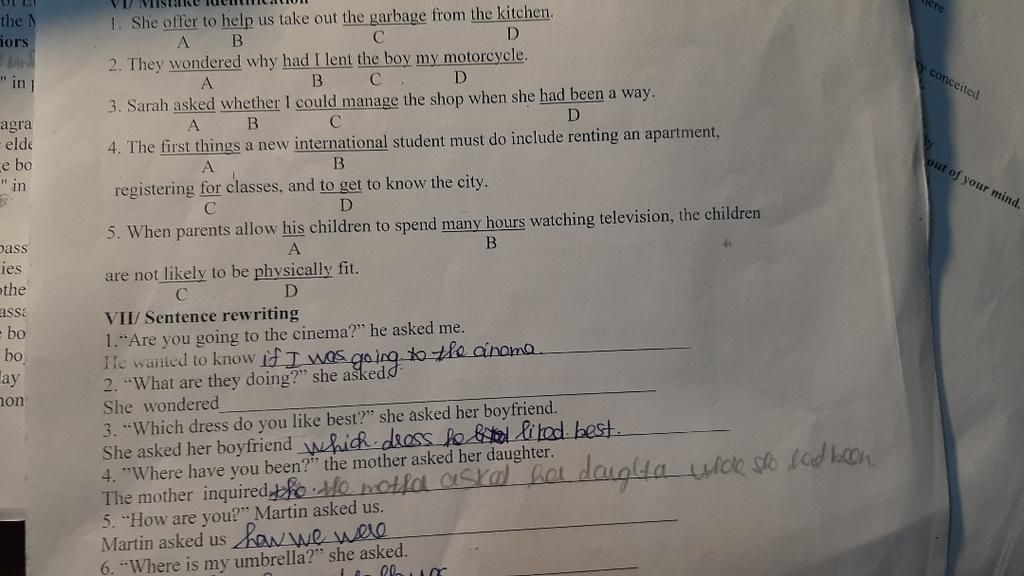 VI/ Mistake identification
1. She offer to help us take out the garbage from the kitchen.
A B C D
2. They wondered why had I lent the boy my motorcycle.
A B C D
3. Sarah asked whether I could manage the shop when she had been a way.
A B C D
4. The first things a new international student must do include renting an apartment,
A B
registering for classes, and to get to know the city.
C D
5. When parents allow his children to spend many hours watching television, the children
A B
are not likely to be physically fit.
C D
VII/ Sentence rewriting
1.“Are you going to the cinema?” he asked me.
He wanted to know if I was going to the cinama
2. “What are they doing?” she asked.
She wondered
3. “Which dress do you like best?” she asked her boyfriend.
She asked her boyfriend which dress he liked best.
4. ”Where have you been?” the mother asked her daughter.
The mother inquired the mother asked her daughter had been.
5. “How are you?” Martin asked us.
Martin asked us how we were
6. “Where is my umbrella?” she asked.
the N
iors
" in
agra
elde
e bo
" in
pass
ies
othe
assa
bo
bo
lay
non
here
y conceited
out of your mind.